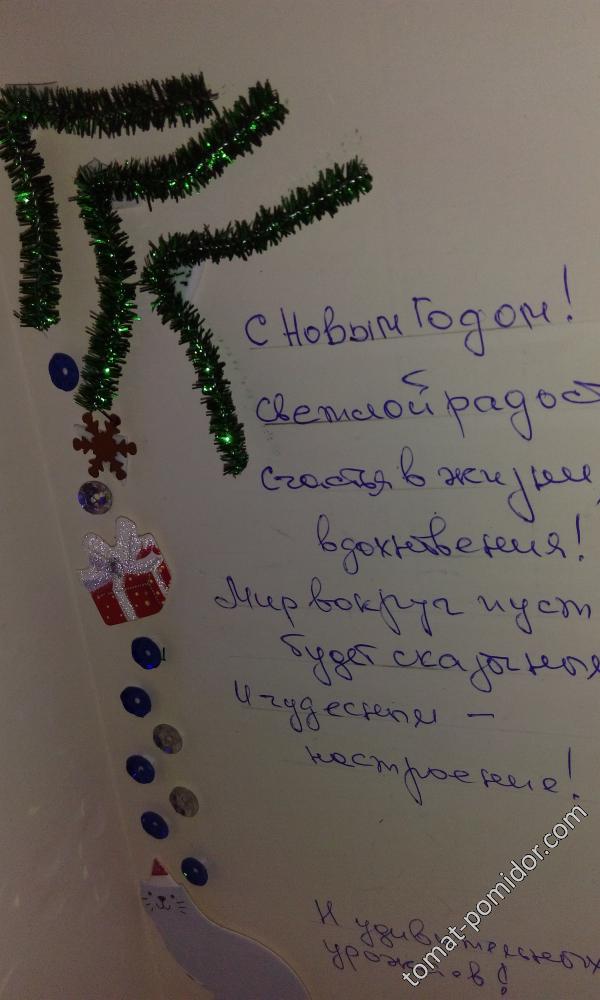 С Новым Годом!
Светлой радост
счастья в жизни,
вдохновения!
Мир вокруг пуст
будет сказочным
И чудесным –
настроение!
И удивительных
урожаев!
tomat-pomidor.com